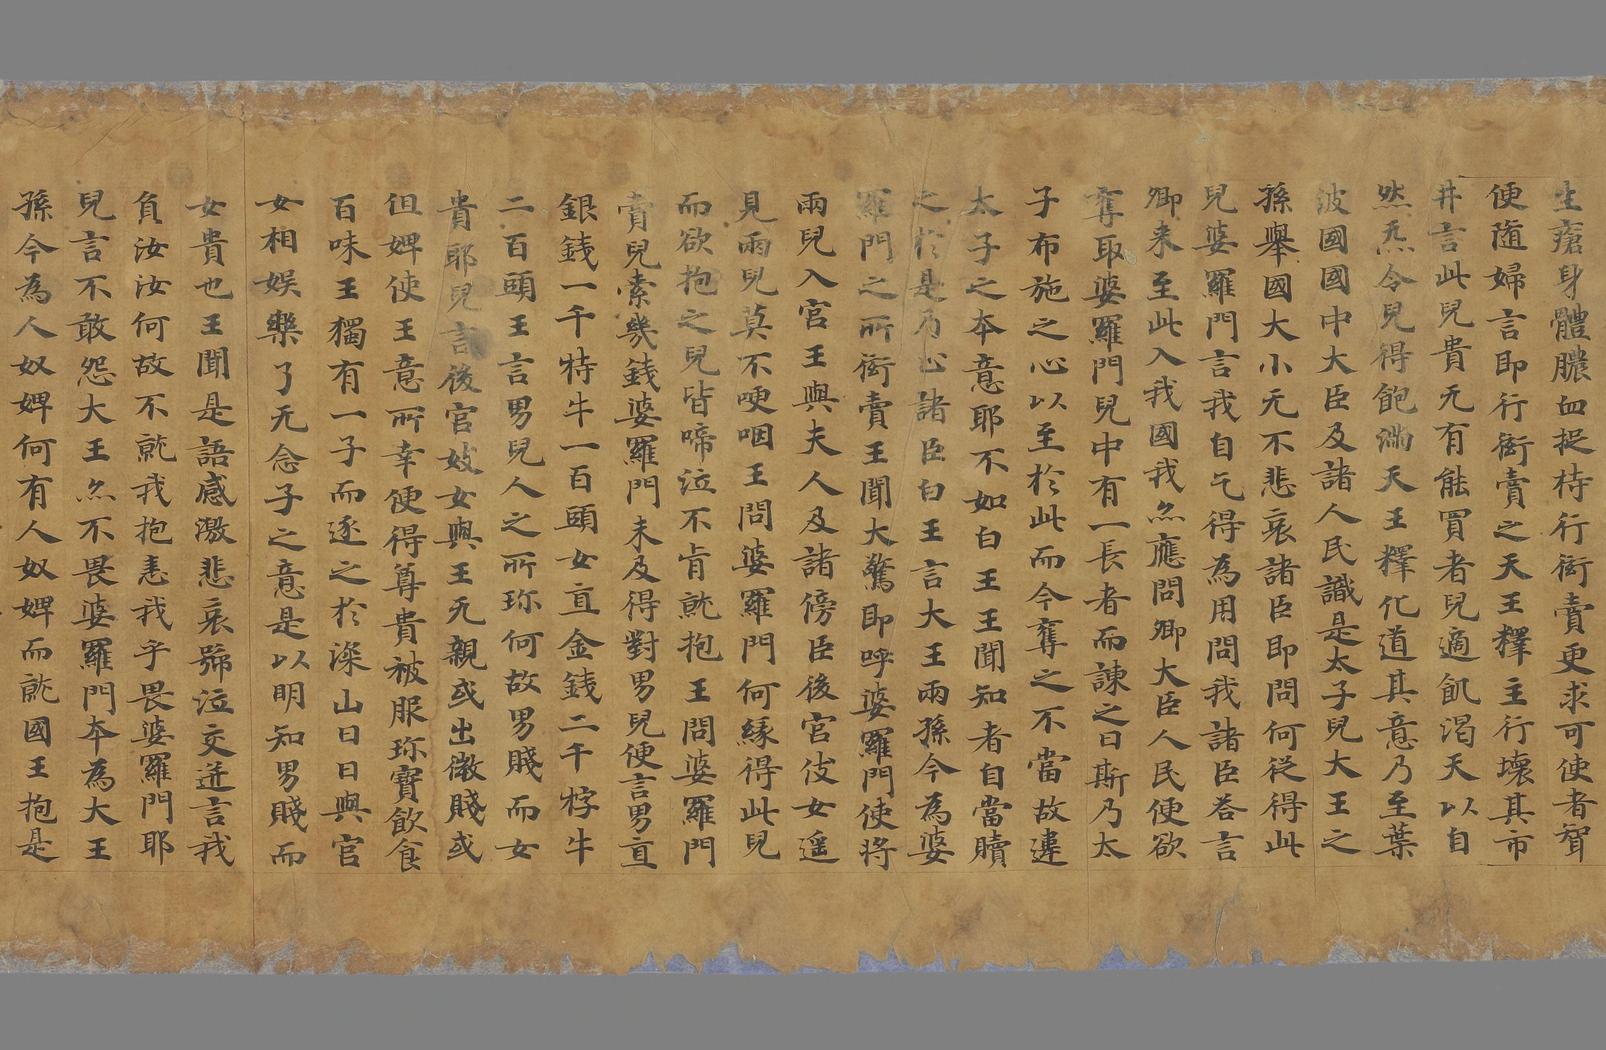 生瘡身體膿血捉持行衒賣更求可使者聟
便隨婦言即行衒賣之天王釋主行壞其市
井言此兒貴无有能買者兒適飢渴天以自
然炁令兒得飽滿天王釋化道其意乃至葉
波國國中大臣及諸人民識是太子兒大王之
孫舉國大小无不悲哀諸臣即問何從得此
兒婆羅門言我自乞得為用問我諸臣荅言
卿来至此入我國我亦應問卿大臣人民便欲
奪取婆羅門兒中有一長者而諫之曰斯乃太
子布施之心以至於此而今奪之不當故違
太子之本意耶不如白王王聞知者自當贖
之於是乃止諸臣白王言大王兩孫今為婆
羅門之所衒賣王聞大驚即呼婆羅門使將
兩兒入宮王與夫人及諸傍臣後宮伎女遥
見兩兒莫不哽咽王問婆羅門何緣得此兒
而欲抱之兒皆啼泣不肯就抱王問婆羅門
賣兒索幾錢婆羅門未及得對男兒便言男直
銀錢一千特牛一百頭女直金錢二千牸牛
二百頭王言男兒人之所珎何故男賤而女
貴耶兒言後宮妓女與王无親或出微賤或
但婢使王意所幸便得尊貴被服珎寶飲食
百味王獨有一子而逐之於深山日日與宮
女相娛樂了无念子之意是以明知男賤而
女貴也王聞是語感激悲哀號泣交迸言我
負汝汝何故不就我抱恚我乎畏婆羅門耶
兒言不敢怨大王亦不畏婆羅門本為大王
孫今為人奴婢何有人奴婢而就國王抱是